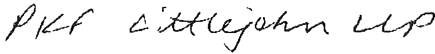 PKF Littlejohn LLP